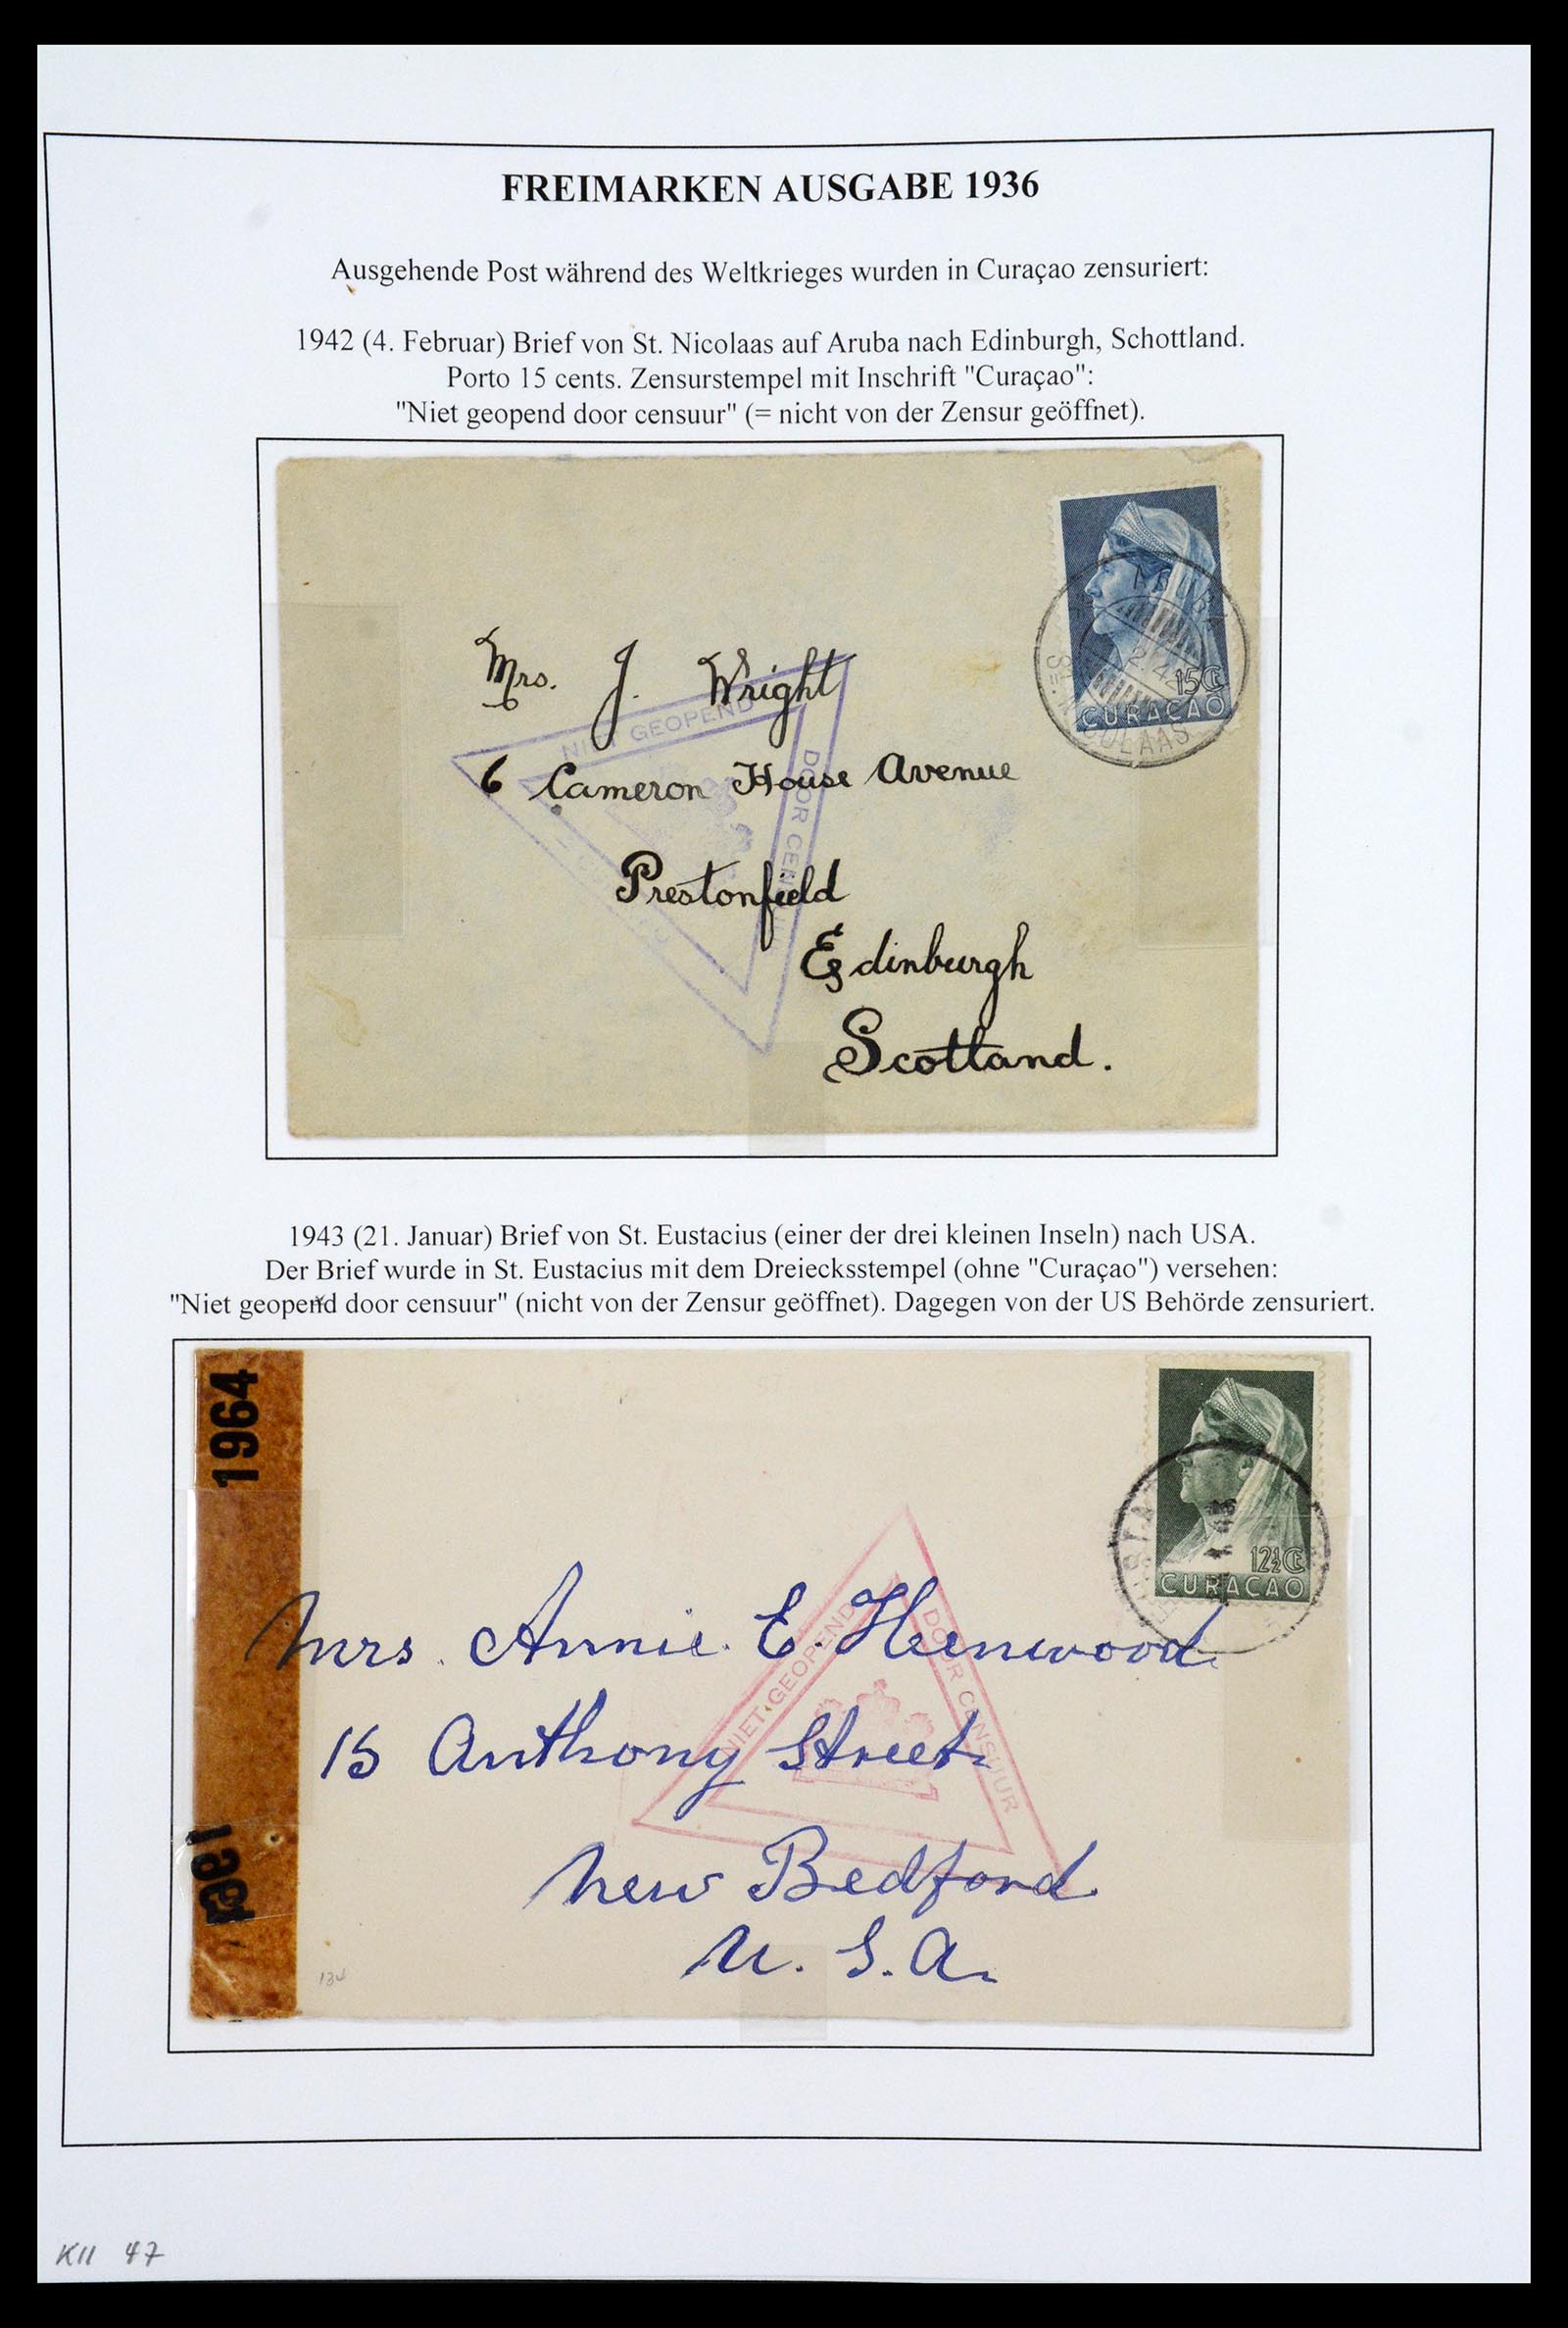 FREIMARKEN AUSGABE 1936
Ausgehende Post während des Weltkrieges wurden in Curaçao zensuriert:
1942 (4. Februar) Brief von St. Nicolaas auf Aruba nach Edinburgh, Schottland.
Porto 15 cents. Zensurstempel mit Inschrift "Curaçao":
"Niet geopend door censuur" (= nicht von der Zensur geöffnet).
15 Ct
CURAÇAO
NIET GEOPEND
DOOR
Mrs. J. Wright
6 Cameron House Avenue
Prestonfield
Edinburgh
Scotland.
1943 (21. Januar) Brief von St. Eustacius (einer der drei kleinen Inseln) nach USA.
Der Brief wurde in St. Eustacius mit dem Dreiecksstempel (ohne "Curaçao") versehen:
"Niet geopend door censuur" (nicht von der Zensur geöffnet). Dagegen von der US Behörde zensuriert.
1964
12½ Ct
CURAÇAO
NIET GEOPEND
DOOR CENSUUR
Mrs. Annie. E. Henwood.
15 Anthony Street.
New Bedford.
U. S. A.
134
KII 47